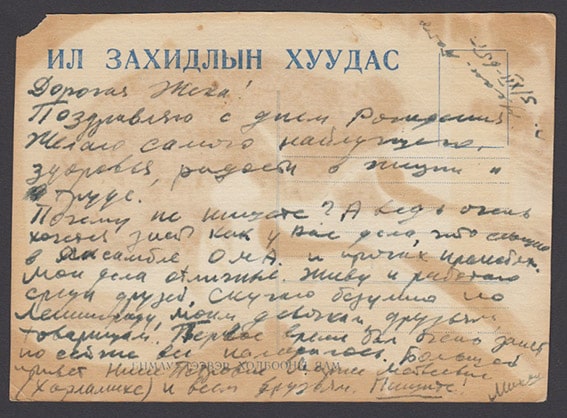 ИЛ ЗАХИДЛЫН ХУУДАС
Дорогая Жека!
Поздравляю с днем Рождения
Желаю самого наилучшего,
здоровья, радости в жизни и
в труде.
Почему не пишете? А ведь очень
хочется знать как у вас дела, что слышно
в Ансамбле, ОМА. и прочих
Мои дела отличные. Живу и работаю
среди друзей, скучаю безумно по
Ленинграду, моим девочкам друзьям,
товарищам. Первое время был очень занят
но сейчас все наладилось. Большой
привет Нине Петровне
(Харламихе) и всем друзьям. Пишите!